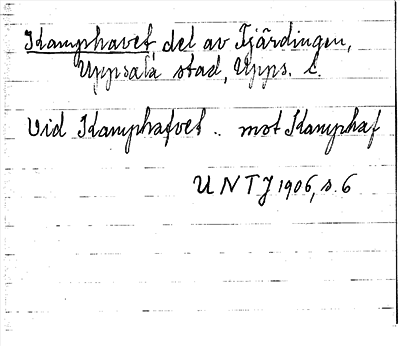 Kamphavet, del av Fjärdingen,
Uppsala stad, Upps. l.
Vid Kamphafvet .. mot Kamphaf
UNTJ 1906, s. 6